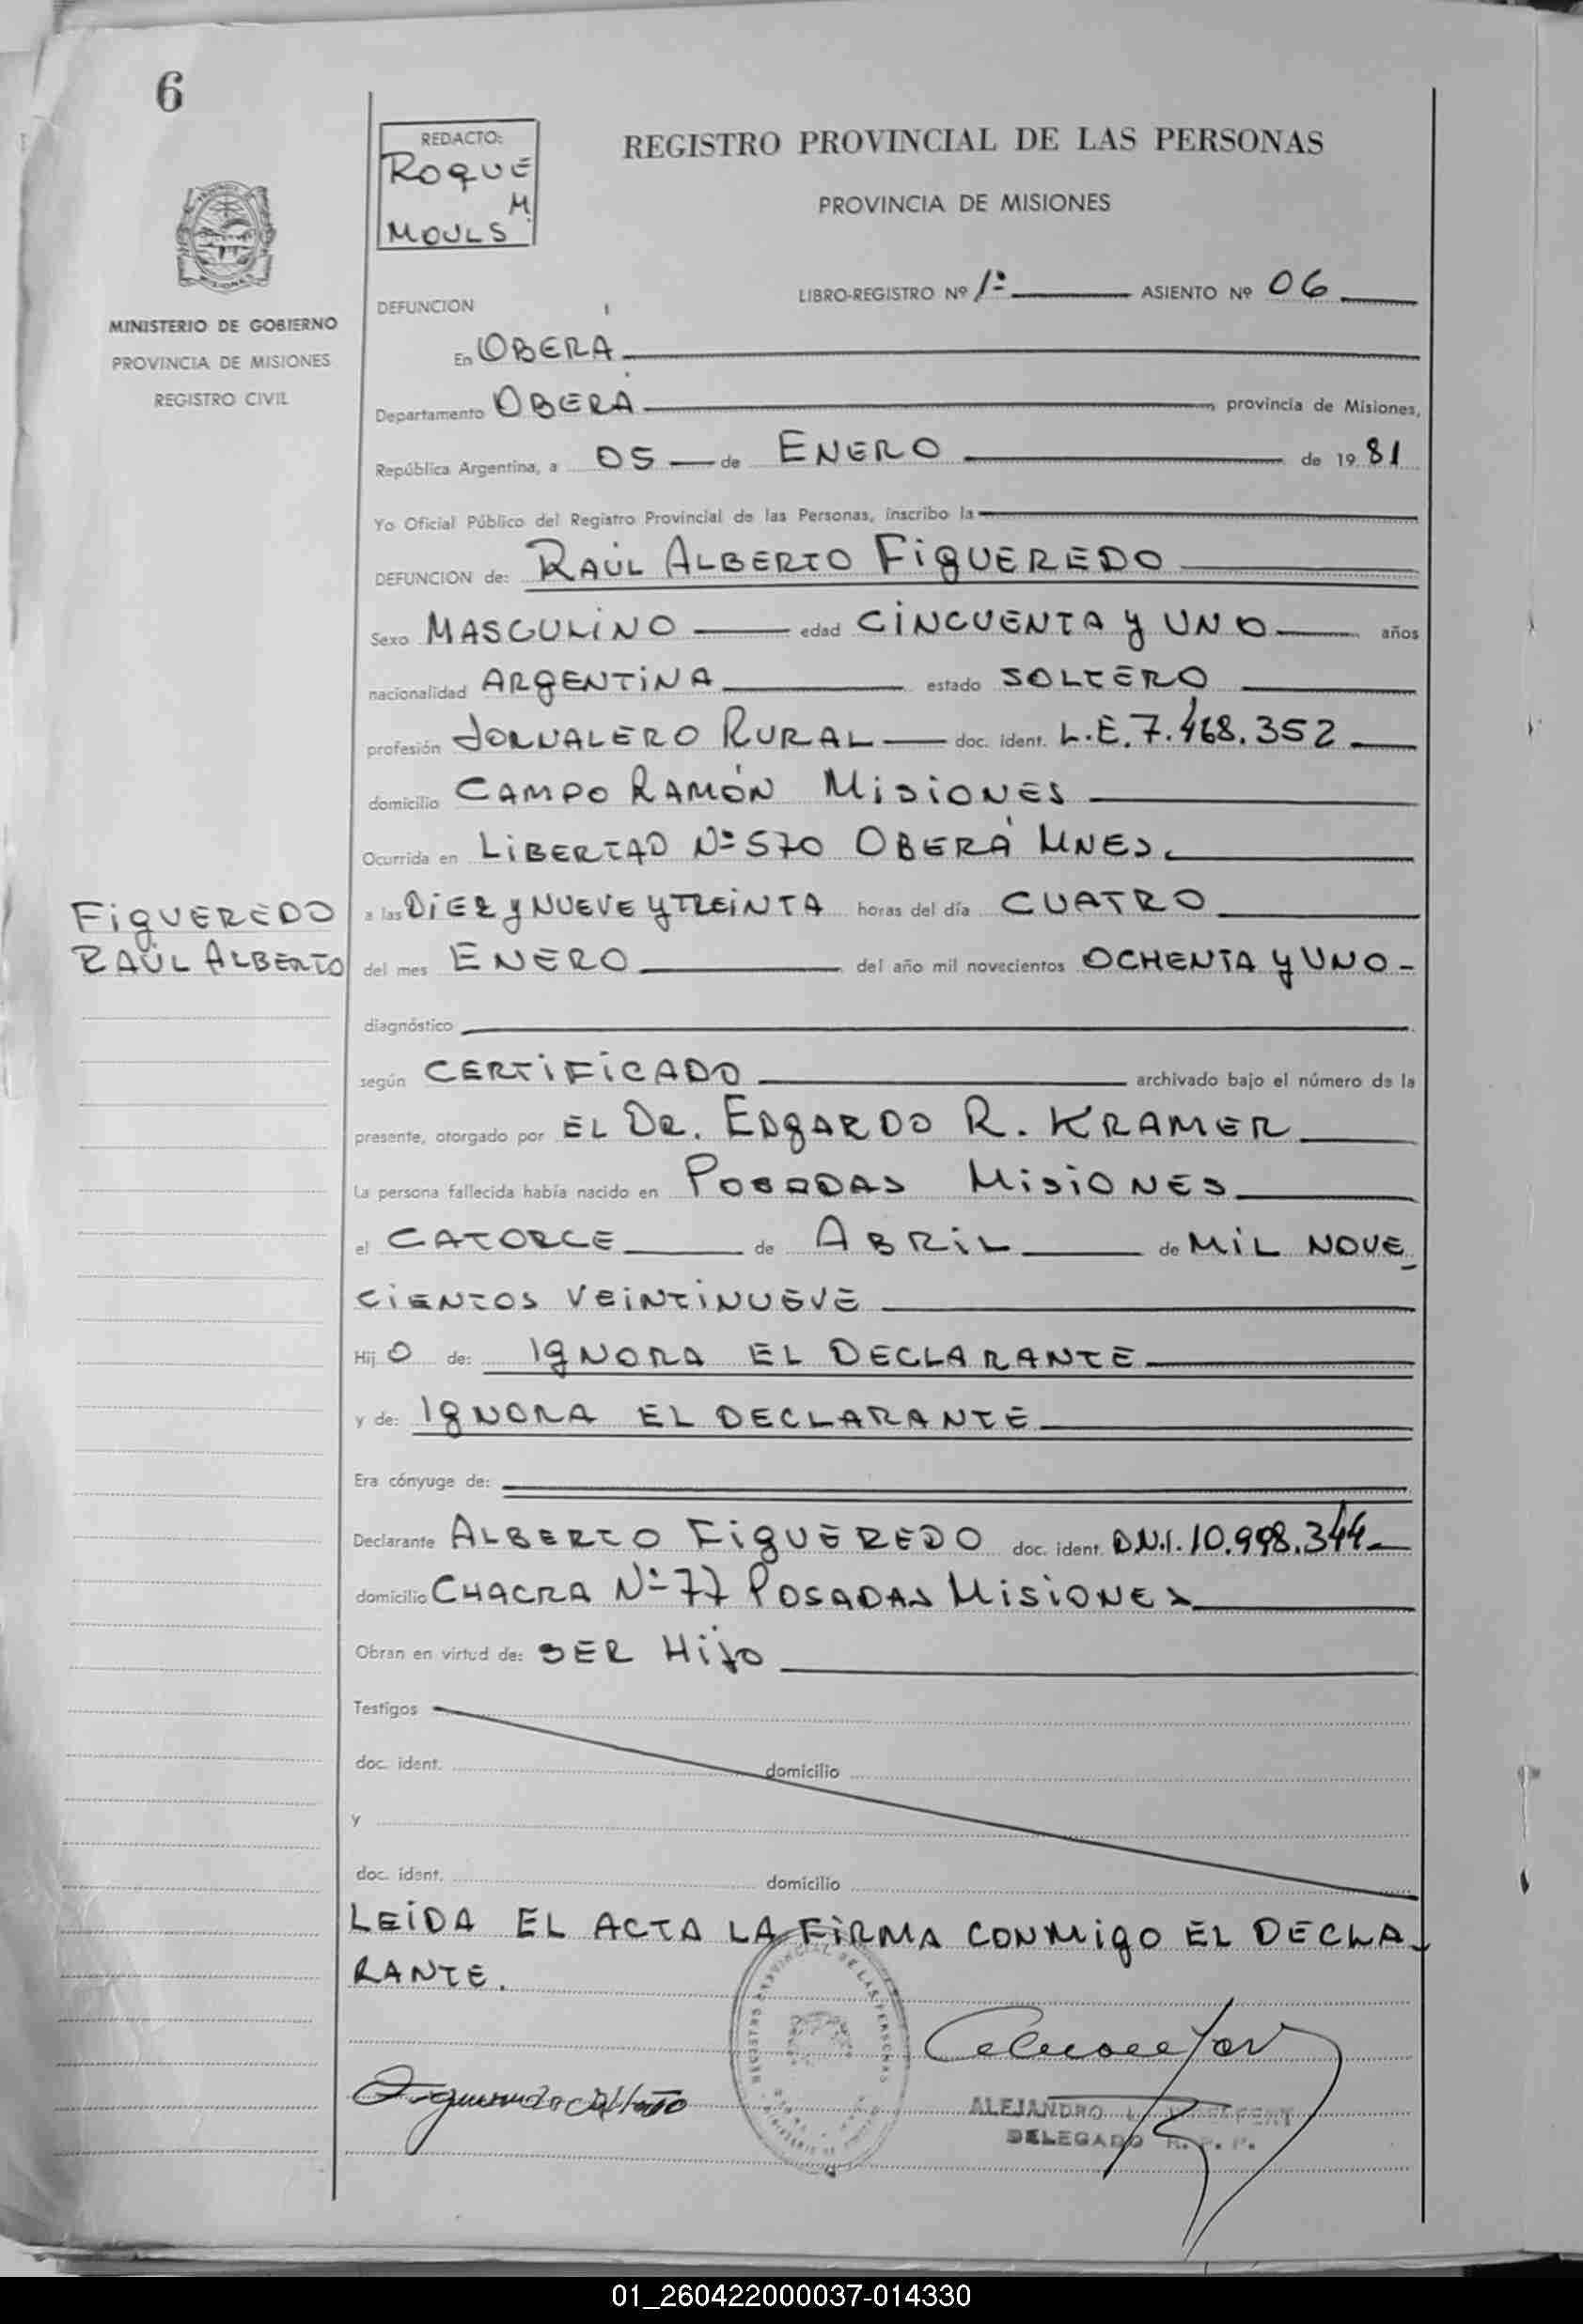 6
REDACTO:
ROQUE
M.
MOULS
REGISTRO PROVINCIAL DE LAS PERSONAS
PROVINCIA DE MISIONES
MINISTERIO DE GOBIERNO
PROVINCIA DE MISIONES
REGISTRO CIVIL
DEFUNCION
LIBRO-REGISTRO Nº 1º ASIENTO Nº 06
En OBERÁ
Departamento OBERÁ, provincia de Misiones,
República Argentina, a 05 de ENERO de 1981
Yo Oficial Público del Registro Provincial de las Personas, inscribo la
DEFUNCION de: RAÚL ALBERTO FIGUEREDO
Sexo MASCULINO edad CINCUENTA Y UNO años
nacionalidad ARGENTINA estado SOLTERO
profesión JORNALERO RURAL doc. ident. L.E. 7.468.352
domicilio CAMPO RAMÓN MISIONES
Ocurrida en LIBERTAD Nº 570 OBERÁ MNES.
FIGUEREDO
RAÚL ALBERTO
a las DIEZ Y NUEVE Y TREINTA horas del día CUATRO
del mes ENERO del año mil novecientos OCHENTA Y UNO-
diagnóstico
según CERTIFICADO archivado bajo el número de la
presente, otorgado por EL DR. EDGARDO R. KRAMER
La persona fallecida había nacido en POSADAS MISIONES
el CATORCE de ABRIL de MIL NOVE
CIENTOS VEINTINUEVE
Hij O de: IGNORA EL DECLARANTE
y de: IGNORA EL DECLARANTE
Era cónyuge de:
Declarante ALBERTO FIGUEREDO doc. ident. D.N.I. 10.998.344
domicilio CHACRA Nº 77 POSADAS MISIONES
Obran en virtud de: SER HIJO
Testigos
doc. ident. domicilio
y
doc. ident. domicilio
LEIDA EL ACTA LA FIRMA CONMIGO EL DECLA-
RANTE.
REGISTRO PROVINCIAL DE LAS PERSONAS
Figueredo Alberto
ALEJANDRO
DELEGADO R. P. P.
01_260422000037-014330